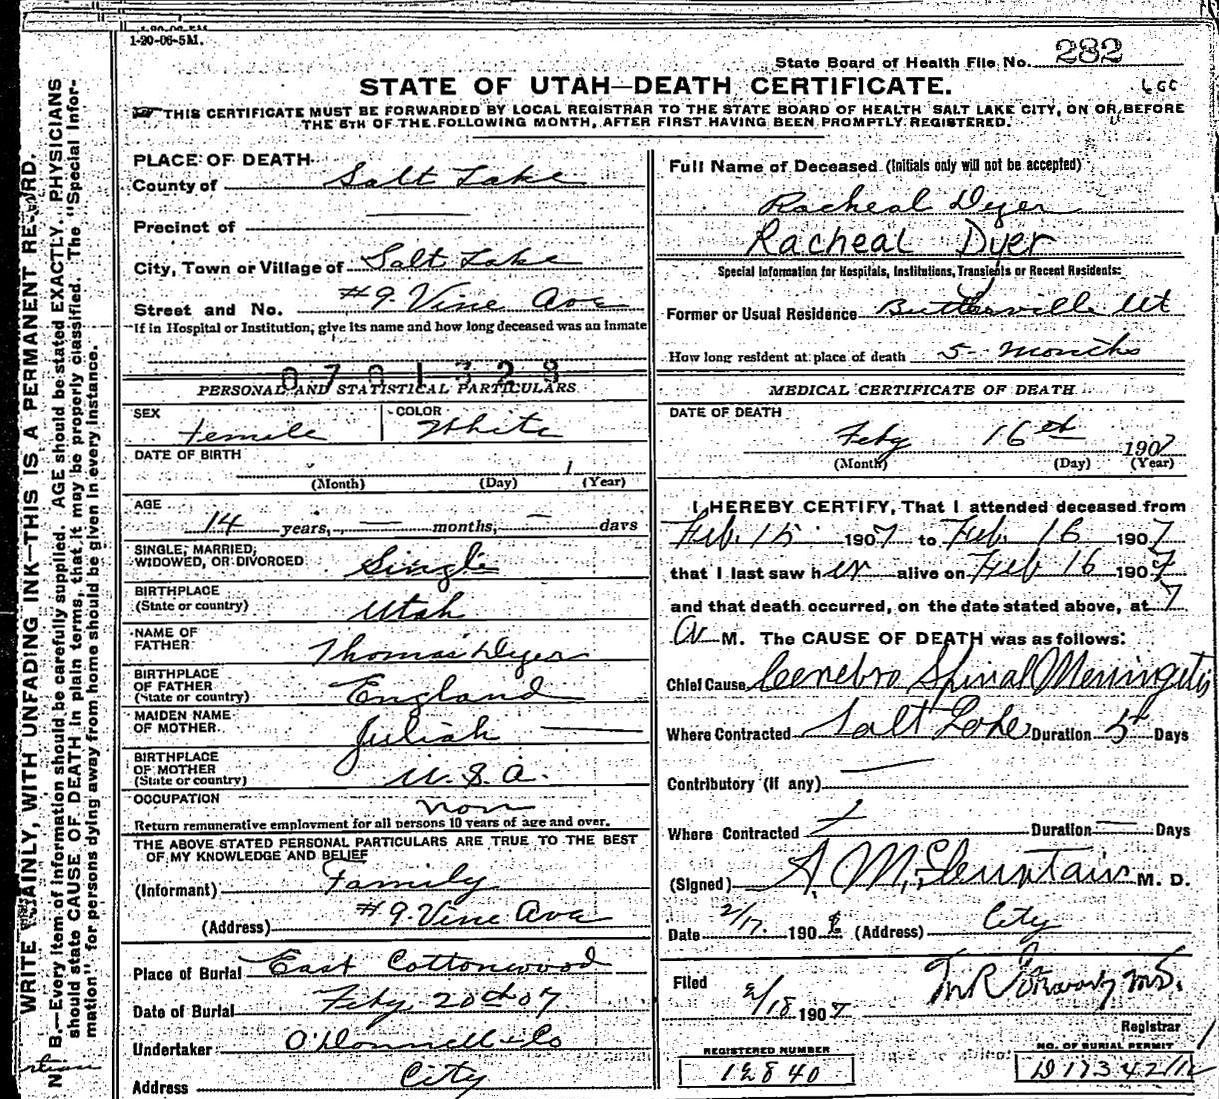 1-20-06-5M.
State Board of Health File No. 282
STATE OF UTAH—DEATH CERTIFICATE.
LGC
THIS CERTIFICATE MUST BE FORWARDED BY LOCAL REGISTRAR TO THE STATE BOARD OF HEALTH SALT LAKE CITY, ON OR BEFORE
THE 5TH OF THE FOLLOWING MONTH, AFTER FIRST HAVING BEEN PROMPTLY REGISTERED.
WRITE PLAINLY, WITH UNFADING INK—THIS IS A PERMANENT RECORD.
N. B.—Every item of information should be carefully supplied. AGE should be stated EXACTLY. PHYSICIANS
should state CAUSE OF DEATH in plain terms, that it may be properly classified. The "Special Infor-
mation" for persons dying away from home should be given in every instance.
PLACE OF DEATH
County of Salt Lake
Precinct of
City, Town or Village of Salt Lake
Street and No. #9 Vine Ave
If in Hospital or Institution, give its name and how long deceased was an Inmate
0701328
PERSONAL AND STATISTICAL PARTICULARS
SEX female
COLOR White
DATE OF BIRTH
(Month) (Day) 1 (Year)
AGE
14 years, — months, — days
SINGLE, MARRIED,
WIDOWED, OR DIVORCED Single
BIRTHPLACE
(State or country) Utah
NAME OF
FATHER Thomas Dyer
BIRTHPLACE
OF FATHER
(State or country) England
MAIDEN NAME
OF MOTHER Juliah —
BIRTHPLACE
OF MOTHER
(State or country) U.S.A.
OCCUPATION non
Return remunerative employment for all persons 10 years of age and over.
THE ABOVE STATED PERSONAL PARTICULARS ARE TRUE TO THE BEST
OF MY KNOWLEDGE AND BELIEF
(Informant) Family
(Address) #9 Vine Ave
Place of Burial East Cottonwood
Date of Burial Feby 20th 07
Undertaker O'Donnell & Co
Address City
Full Name of Deceased (Initials only will not be accepted)
Racheal Dyer
Racheal Dyer
Special Information for Hospitals, Institutions, Transients or Recent Residents:
Former or Usual Residence Buttlerville Ut
How long resident at place of death 5 months
MEDICAL CERTIFICATE OF DEATH
DATE OF DEATH
Feby 16th 1907
(Month) (Day) (Year)
I HEREBY CERTIFY, That I attended deceased from
Feb. 15 1907 to Feb. 16 1907
that I last saw her alive on Feb 16 1907
and that death occurred, on the date stated above, at 7
A M. The CAUSE OF DEATH was as follows:
Chief Cause Cerebro Spinal Meningitis
Where Contracted Salt Lake Duration 5 Days
Contributory (if any) —
Where Contracted Duration — Days
(Signed) M. D.
Date 2/17. 190 (Address) City
Filed 2/18 1907
Registrar
REGISTERED NUMBER
12840
NO. OF BURIAL PERMIT